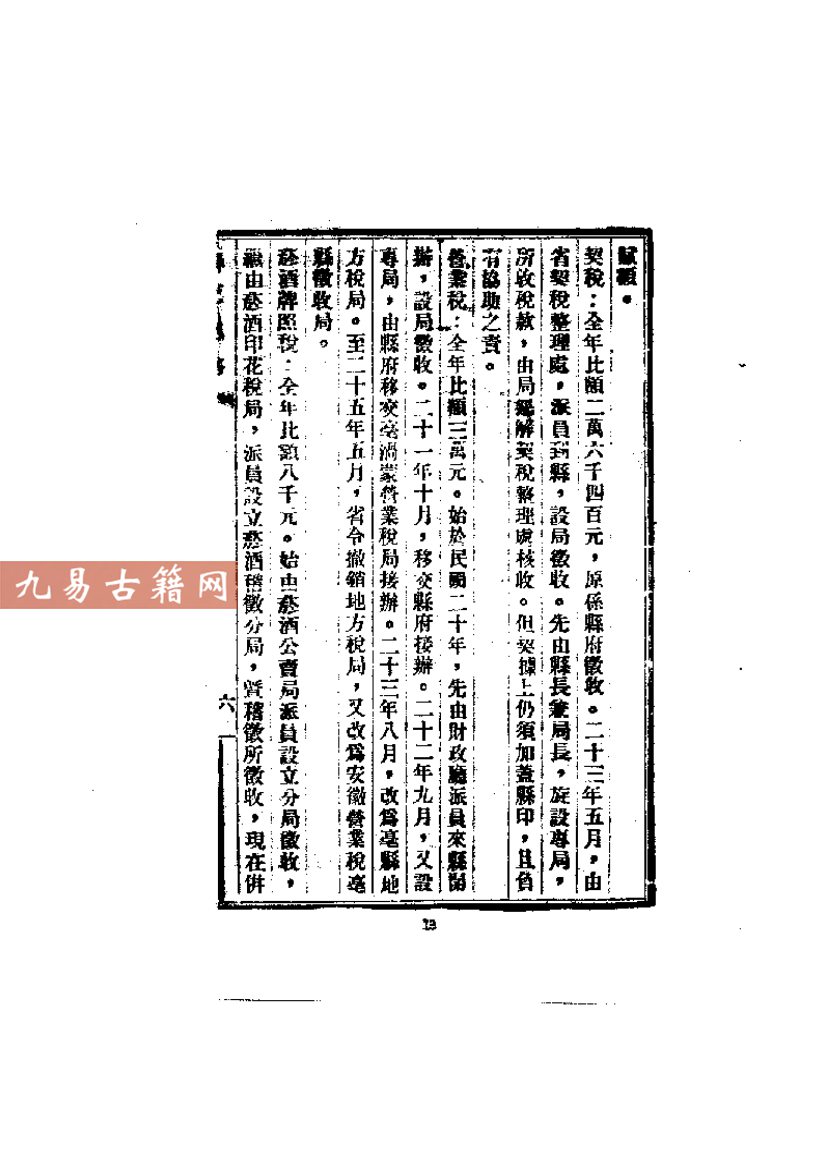 賦額。
契稅：全年比額二萬六千四百元，原係縣府徵收。二十三年五月，由
省契稅整理處，派員到縣，設局徵收。先由縣長兼局長，旋設專局，
所收稅款，由局逕解契稅整理處核收。但契據上仍須加蓋縣印，且負
有協助之責。
營業稅：全年比額三萬元。始於民國二十年，先由財政廳派員來縣開
辦，設局徵收。二十一年十月，移交縣府接辦。二十二年九月，又設
專局，由縣府移交亳渦蒙營業稅局接辦。二十三年八月，改爲亳縣地
方稅局。至二十五年五月，省令撤銷地方稅局，又改爲安徽營業稅亳
縣徵收局。
菸酒牌照稅：全年比額八千元。始由菸酒公賣局派員設立分局徵收，
繼由菸酒印花稅局，派員設立菸酒稽徵分局，暨稽徵所徵收，現在併
六
九易古籍网